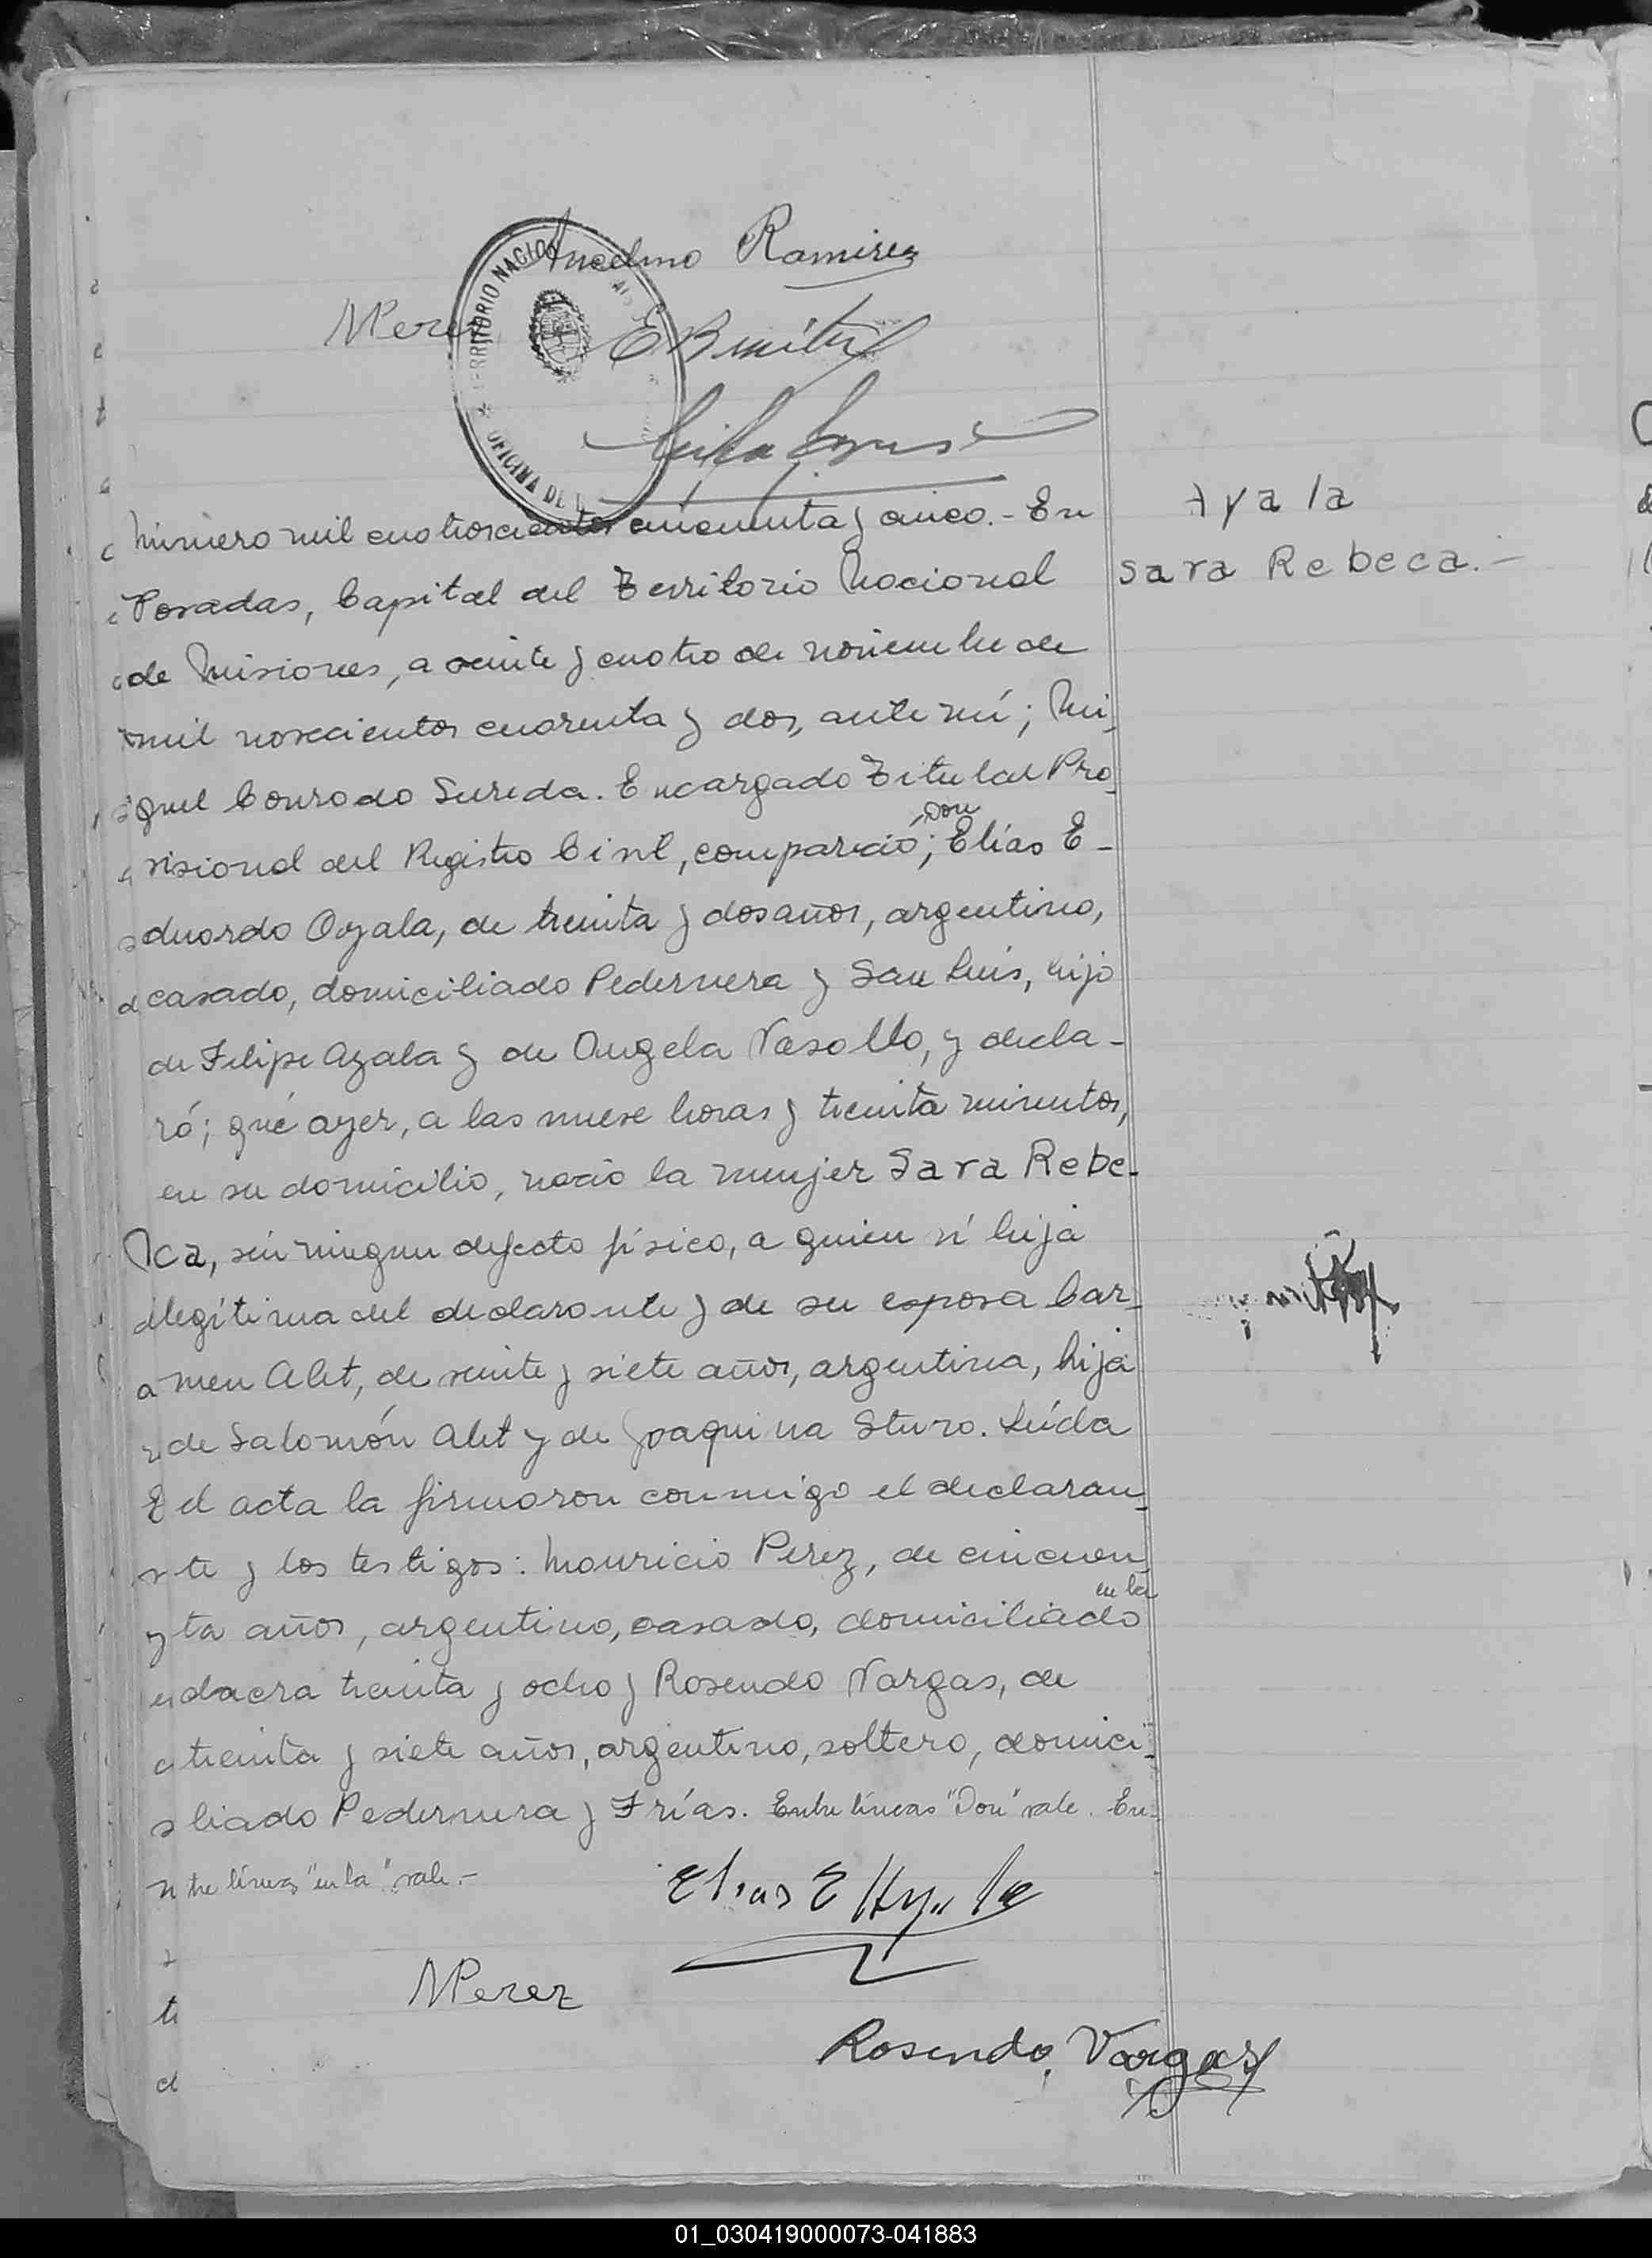 Anselmo Ramirez
MPerez
EBenitez
TERRITORIO NACIO
OFICINA DE
Número mil cuatrocientos cincuenta y cinco.- En
Posadas, Capital del Territorio Nacional
de Misiones, a veinte y cuatro de noviembre de
mil novecientos cuarenta y dos, ante mí; Mi-
guel Conrado Sureda. Encargado Titular Pro-
visional del Registro Civil, compareció; Don Elías E-
duardo Ayala, de treinta y dos años, argentino,
casado, domiciliado Pedernera y San Luis, hijo
de Felipe Ayala y de Angela Vasallo, y decla-
ró; qué ayer, a las nueve horas y treinta minutos,
en su domicilio, nació la mujer Sara Rebe-
ca, sin ningun defecto físico, a quien ví hija
legítima del declarante y de su esposa Car-
men Alet, de veinte y siete años, argentina, hija
de Salomón Alet y de Joaquina Sturo. Leída
el acta la firmaron conmigo el declaran-
te y los testigos: Mauricio Perez, de cincuen-
ta años, argentino, casado, domiciliado en la
chacra treinta y ocho y Rosendo Vargas, de
treinta y siete años, argentino, soltero, domici-
liado Pedernera y Frías. Entre líneas "Don" vale. En-
tre líneas "en la" vale.-
Elias E Ayala
MPerez
Rosendo Vargas
Ayala
Sara Rebeca.-
01_030419000073-041883